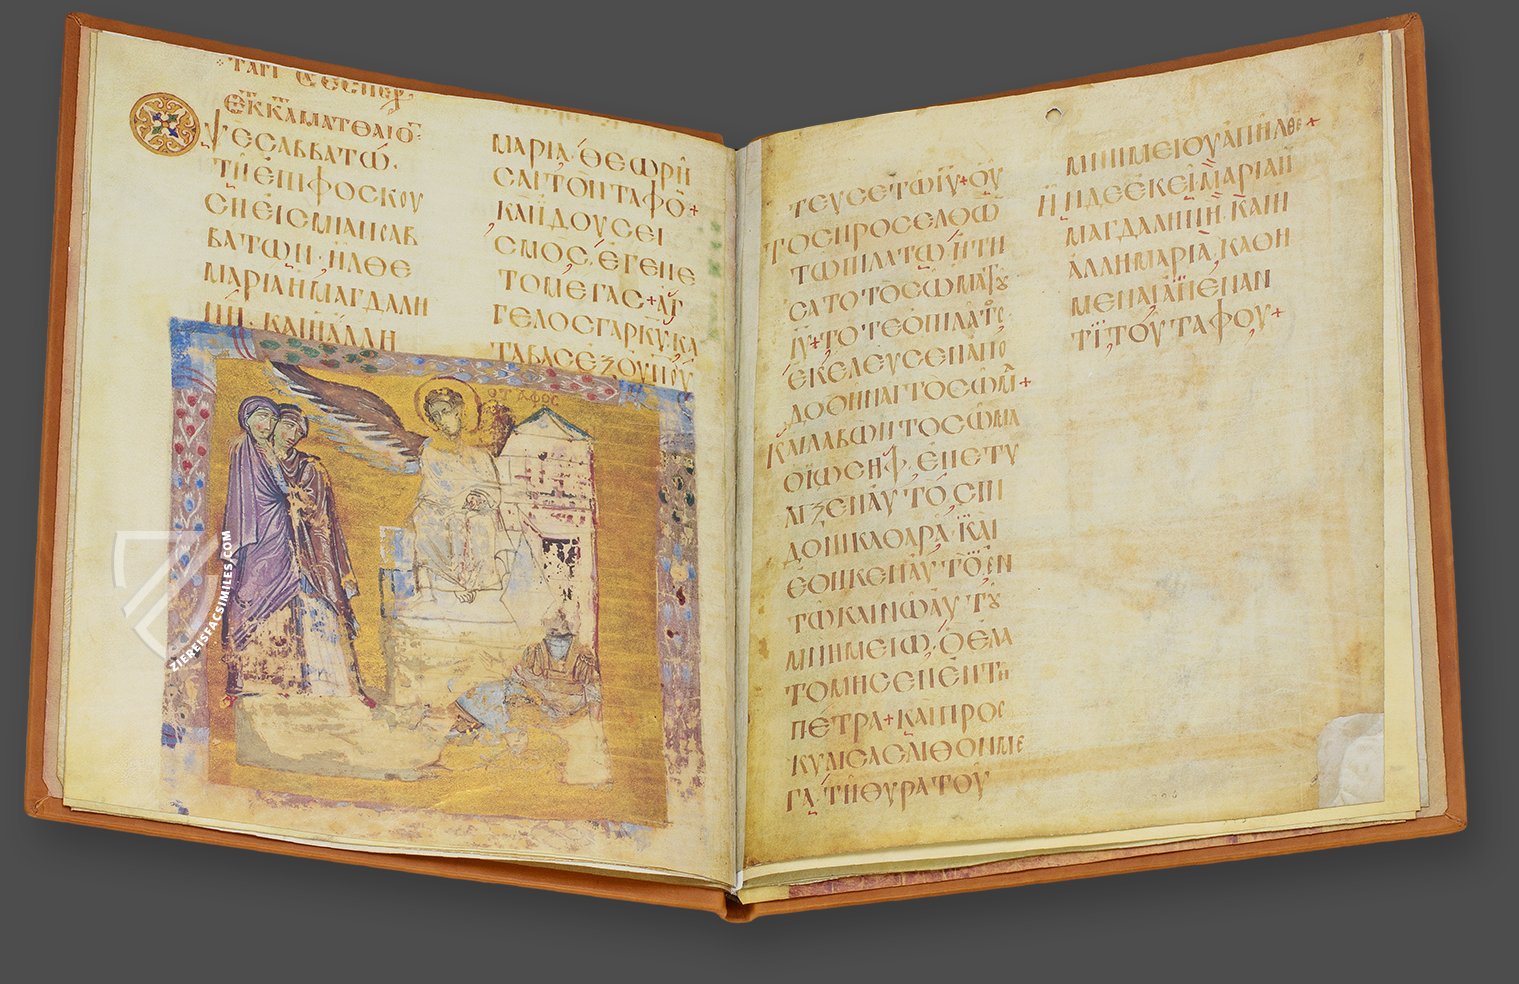 ΕΚ Κ,Α ΜΑΤΘΑΙΟ
ΨΕ CΑΒΒΑΤΩ.
ΤΗ ΕΠΙΦΟCΚΟΥ
CΗ ΕΙC ΜΙΑΝ CΑΒ
ΒΑΤΩΝ· ΗΛΘΕ
ΜΑΡΙΑ Η ΜΑΓΔΑΛΗ
ΝΗ· ΚΑΙ Η ΑΛΛΗ
ΜΑΡΙΑ· ΘΕΩΡΗ
CΑΙ ΤΟΝ ΤΑΦΟ+
ΚΑΙ ΙΔΟΥ CΕΙ
CΜΟC ΕΓΕΝΕ
ΤΟ ΜΕΓΑC+ΑΓ
ΓΕΛΟC ΓΑΡ ΚΥ ΚΑ
ΤΑΒΑC ΕΞ ΟΥΝΟΥ
Ο ΤΑΦΟC
ΤΕΥCΕ ΤΩ ΙΥ+ΟΥ
ΤΟC ΠΡΟCΕΛΘΩ
ΤΩ ΠΙΛΑΤΩ ΗΤΗ
CΑΤΟ ΤΟ CΩΜΑ ΤΟΥ
ΙΥ+ΤΟΤΕ Ο ΠΙΛΑΤΟC
ΕΚΕΛΕΥCΕΝ ΑΠΟ
ΔΟΘΗΝΑΙ ΤΟ CΩΜΑ+
ΚΑΙ ΛΑΒΩΝ ΤΟ CΩΜΑ
Ο ΙΩCΗΦ, ΕΝΕΤΥ
ΛΙΞΕΝ ΑΥΤΟ CΙΝ
ΔΟΝΙ ΚΑΘΑΡΑ· ΚΑΙ
ΕΘΗΚΕΝ ΑΥΤΟ ΕΝ
ΤΩ ΚΑΙΝΩ ΑΥΤΟΥ
ΜΝΗΜΕΙΩ, Ο ΕΛΑ
ΤΟΜΗCΕΝ ΕΝ ΤΗ
ΠΕΤΡΑ+ΚΑΙ ΠΡΟC
ΚΥΛΙCΑC ΛΙΘΟΝ ΜΕ
ΓΑ, ΤΗ ΘΥΡΑ ΤΟΥ
ΜΝΗΜΕΙΟΥ ΑΠΗΛΘΕ+
ΗΝ ΔΕ ΕΚΕΙ ΜΑΡΙΑ Η
ΜΑΓΔΑΛΗΝΗ· ΚΑΙ Η
ΑΛΛΗ ΜΑΡΙΑ, ΚΑΘΗ
ΜΕΝΑΙ ΑΠΕΝΑΝ
ΤΙ ΤΟΥ ΤΑΦΟΥ+
ZIEREISFACSIMILES.COM